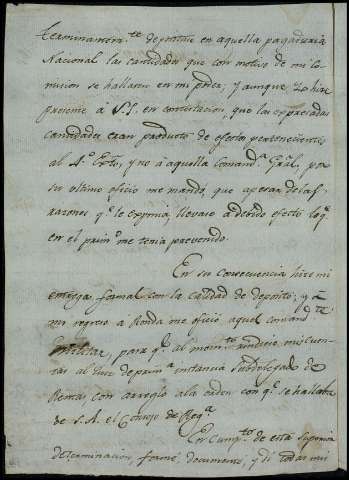 terminamente depositase en aquella pagaduria
Nacional las cantidades que con motivo de mi Co-
mision se hallaren en mi poder; y aunque lo hize
presente á S.S. en contestacion, que las expresadas
cantidades eran producto de efectos pertenecientes
al 4.º Exto, y no á aquella Comand.ª Gral, por
su ultimo oficio me mandó, que apesar de las
razones q.e le exponia, llevase á debido efecto lo q.e
en el prim.o me tenia prevenido.
En su Consecuencia hize mi
entrega formal con la calidad de deposito; y á
mi regreso á Ronda me ofició aquel comand.te
militar, para q.e al mom.to rindiese mis cuen-
tas al Juez de prim.a instancia Subdelegado de
Rentas, con arreglo á la orden con q.e se hallaba
de S.A. el Consejo de Reg.a
En Cump.to de esta Superior
determinacion formé documentos, y di todas mis